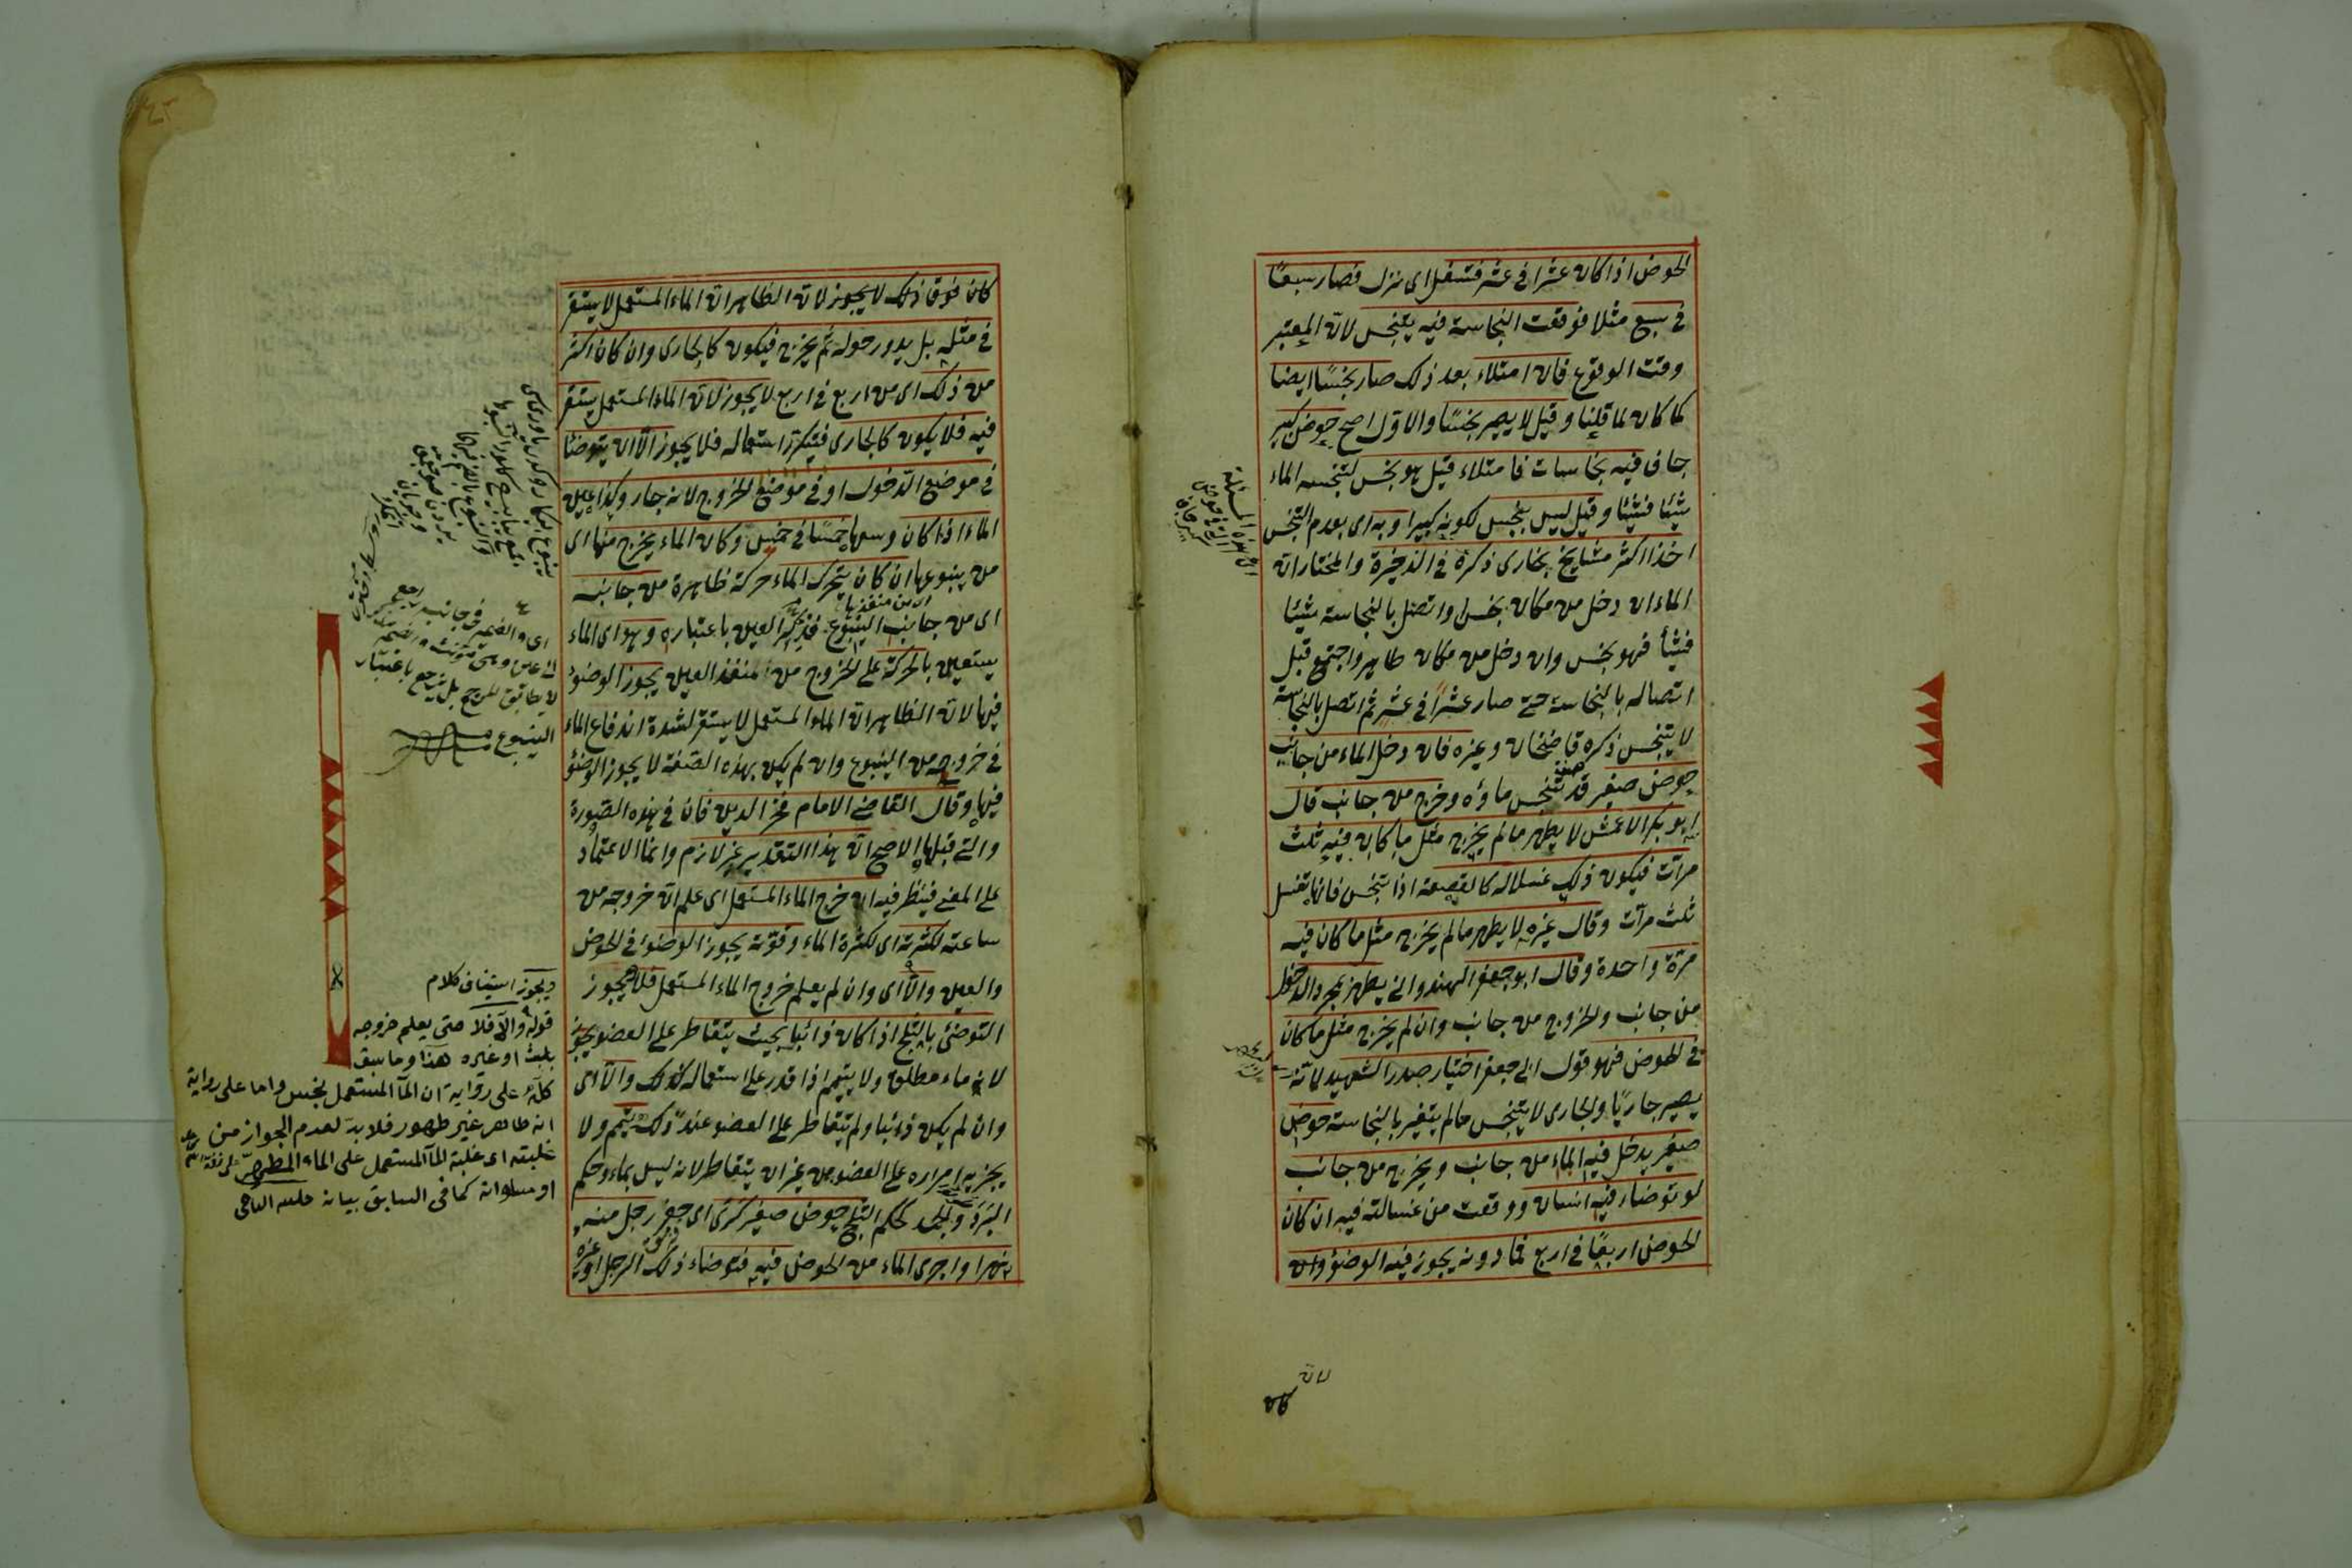 الحوض اذا كان عشرا فى عشر فتسفل اى نزل فصار سبعًا
فى سبع مثلا فوقعت النجاسة فيه يتنجس لان المعتبر
وقت الوقوع فان امتلاء بعد ذلك صار نجسًا ايضا
كما كان لما قلنا وقيل لا يصير نجسًا والاول اصح حوض كبير
جاف فيه نجاسات فامتلاء قيل هو نجس لتنجسه الماء
شيئا فشيئا وقيل ليس بنجس لكونه كبيرا وبه اى بعدم التنجس
اخذ اكثر مشايخ بخارى ذكره فى الذخيرة والمختار ان
الماء ان دخل من مكان نجس او اتصل بالنجاسة شيئا
فشيأ فهو نجس وان دخل من مكان طاهر واجتمع قبل
اتصاله بالنجاسة حتى صار عشرًا فى عشر ثم اتصل بالنجاسة
لا يتنجس ذكره قاضخان وغيره فان دخل الماء من جانب
حوض صغير قد تنجس ماؤه وخرج من جانب قال
ابو بكر الاعمش لا يطهر ما لم يخرج مثل ما كان فيه ثلث
مرات فيكون ذلك غسلا له كالقصعة اذا تنجس فانها تغسل
ثلث مرات وقال غيره لا يطهر ما لم يخرج مثل ما كان فيه
مرة واحدة وقال ابو جعفر الهندوانى يطهر بمجرد الدخول
من جانب والخروج من جانب وان لم يخرج مثل ما كان
فى الحوض فهو قول ابى جعفر اختيار صدر الشهيد لانه
يصير جاريًا والجارى لا يتنجس ما لم يتغير بالنجاسة حوض
صغير يدخل فيه الماء من جانب ويخرج من جانب
لو توضاء فيه انسان ووقعت من غسالته فيه ان كان
الحوض اربعًا فى اربع فما دونه يجوز فيه الوضوء وان
هذه المسئلة
كان فوق ذلك لا يجوز لان الظاهر ان الماء المستعمل لا يستقر
فى مثله بل يدور حوله ثم يخرج فيكون كالجارى وان كان اكثر
من ذلك اى من اربع فى اربع لا يجوز لان الماء المستعمل يستقر
فيه فلا يكون كالجارى فيتكرر استعماله فلا يجوز الا ان يتوضئا
فى موضع الدخول او فى موضع الخروج لانه جار وكذا عين
الماء اذا كان وسعها خمسًا فى خمس وكان الماء يخرج منها اى
من ينبوعها ان كان يتحرك الماء حركة ظاهرة من جانبه
اى من جانب الينبوع فتذكير العين باعتباره وهو اى الماء
يستعين بالحركة على الخروج من المنفذ العين يجوز الوضوء
فيها لان الظاهر ان الماء المستعمل لا يستقر لشدة اندفاع الماء
فى خروجه من الينبوع وان لم يكن بهذه الصفة لا يجوز الوضوء
فيها وقال القاضى الامام فخر الدين خان فى هذه الصورة
والتى قبلها الاصح ان هذا التقدير غير لازم وانما الاعتماد
على المعنى فينظر فيه ان خرج الماء المستعمل اى علم ان خروجه من
ساعته لكثرته اى لكثرة الماء وقوته يجوز الوضوء فى الحوض
والعين والا اى وان لم يعلم خروج الماء المستعمل فلا يجوز
التوضئ بالثلج اذا كان ذائبا بحيث يتقاطر على العضو يجوز
لانه ماء مطلق ولا يتيمم اذا قدر على استعماله كذلك والا اى
وان لم يكن ذائبا ولم يتقاطر على العضو عند ذلك يتيمم ولا
يجزيه امراره على العضو من غير ان يتقاطر لانه ليس بماء وحكم
البَرَد والجمد كحكم الثلج حوض صغير كرى اى حفر رجل منه
نهرا واجرى الماء من الحوض فيه فتوضاء ذلك الرجل او غيره
اى والضمير فى جانبه راجع
لا يطابق المرجع بل يرجع باعتبار
الينبوع
ويجوز استيناف كلام
قوله والا فلا حتى يعلم خروجه
بلبث او غيره هذا وما سبق
كله على رواية ان الماء المستعمل نجس واما على رواية
انه طاهر غير طهور فلا بد لعدم الجواز من
غلبته اى غلبة الماء المستعمل على الماء المطهر
او مساواته كما فى السابق بيانه حلبى